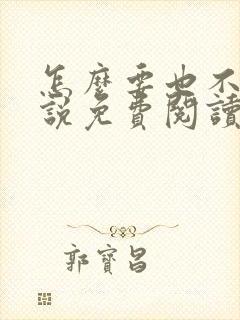 怎麼要也不
說免費閱讀
郭寶昌